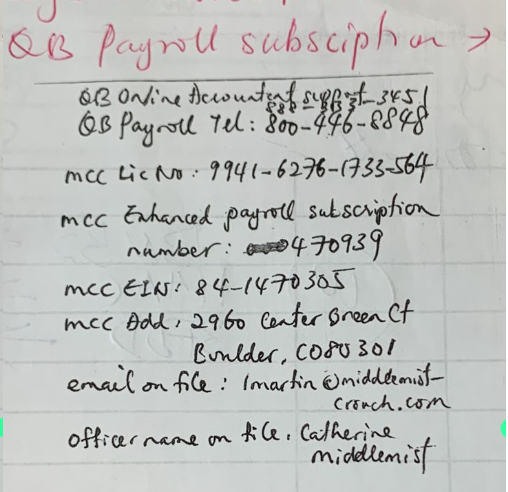 QB Payroll subsciption →
QB Online Accountant support
888-333-3451
QB Payroll Tel: 800-446-8848
mcc Lic No: 9941-6276-1733-564
mcc Enhanced payroll subscription
number: 470939
mcc EIN: 84-1470305
mcc Add: 2960 Center Green Ct
Boulder, CO 80301
email on file: lmartin@middlemist-
crouch.com
officer name on file: Catherine
middlemist